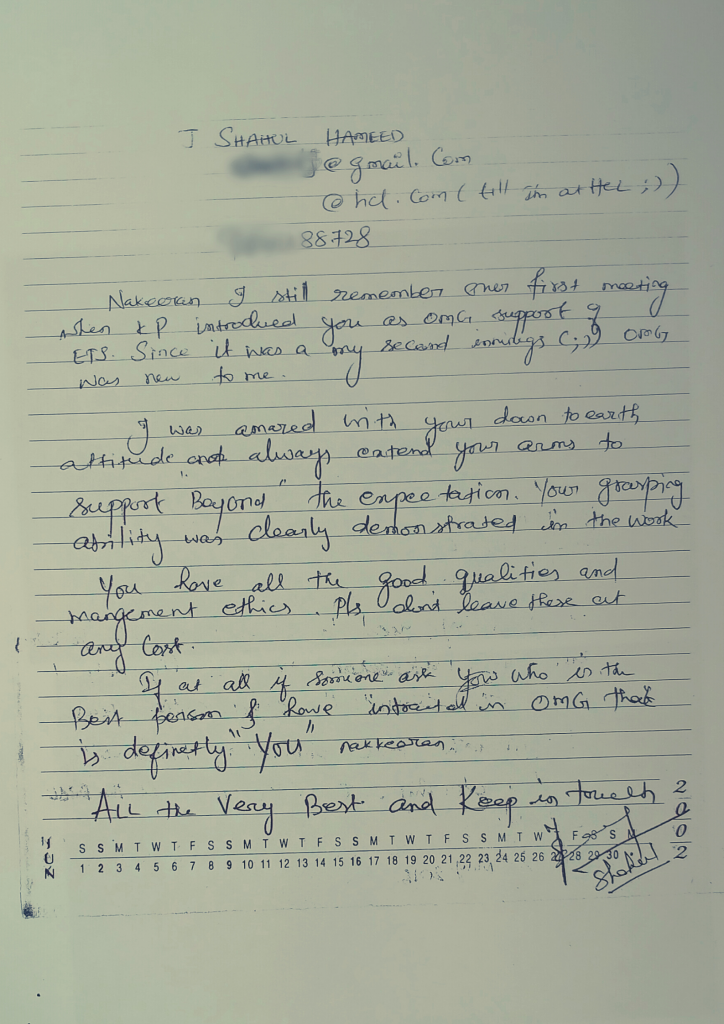 J SHAHUL HAMEED
@gmail.com
@hcl.com (till im at HCL ;))
88728
Nakeeran I still remember our first meeting
when KP introdued you as OMG support of
ETS. Since it was a my second innings (;)) OMG
was new to me.
I was amazed with your down to earth
attitude and always extend your arms to
support "Bayond" the expectation. Your grasping
ability was clearly demonstrated in the work
You have all the good qualities and
mangement ethics. Pls don't leave these at
any cost.
If at all if someone ask you who is the
Best person I have intracted in OMG that
is definetly "You" nakkeeran.
All the Very Best and Keep in touch
JUN
2002
S S M T W T F S S M T W T F S S M T W T F S S M T W F S S M
1 2 3 4 5 6 7 8 9 10 11 12 13 14 15 16 17 18 19 20 21 22 23 24 25 26 28 29 30
Shahul